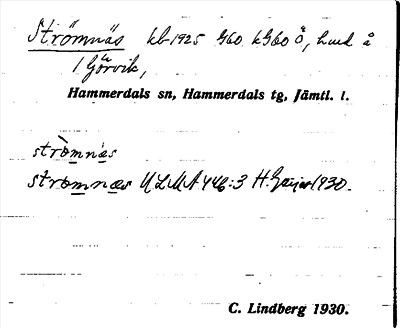 Strömnäs kb 1925 G60 kG60 Ö, hmd å
1 Görvik,
Hammerdals sn, Hammerdals tg, Jämtl. l.
strò̱mnæ̱s
stro̱mnæ̱s ULMA 446:3 H. Geijer 1930.
C. Lindberg 1930.